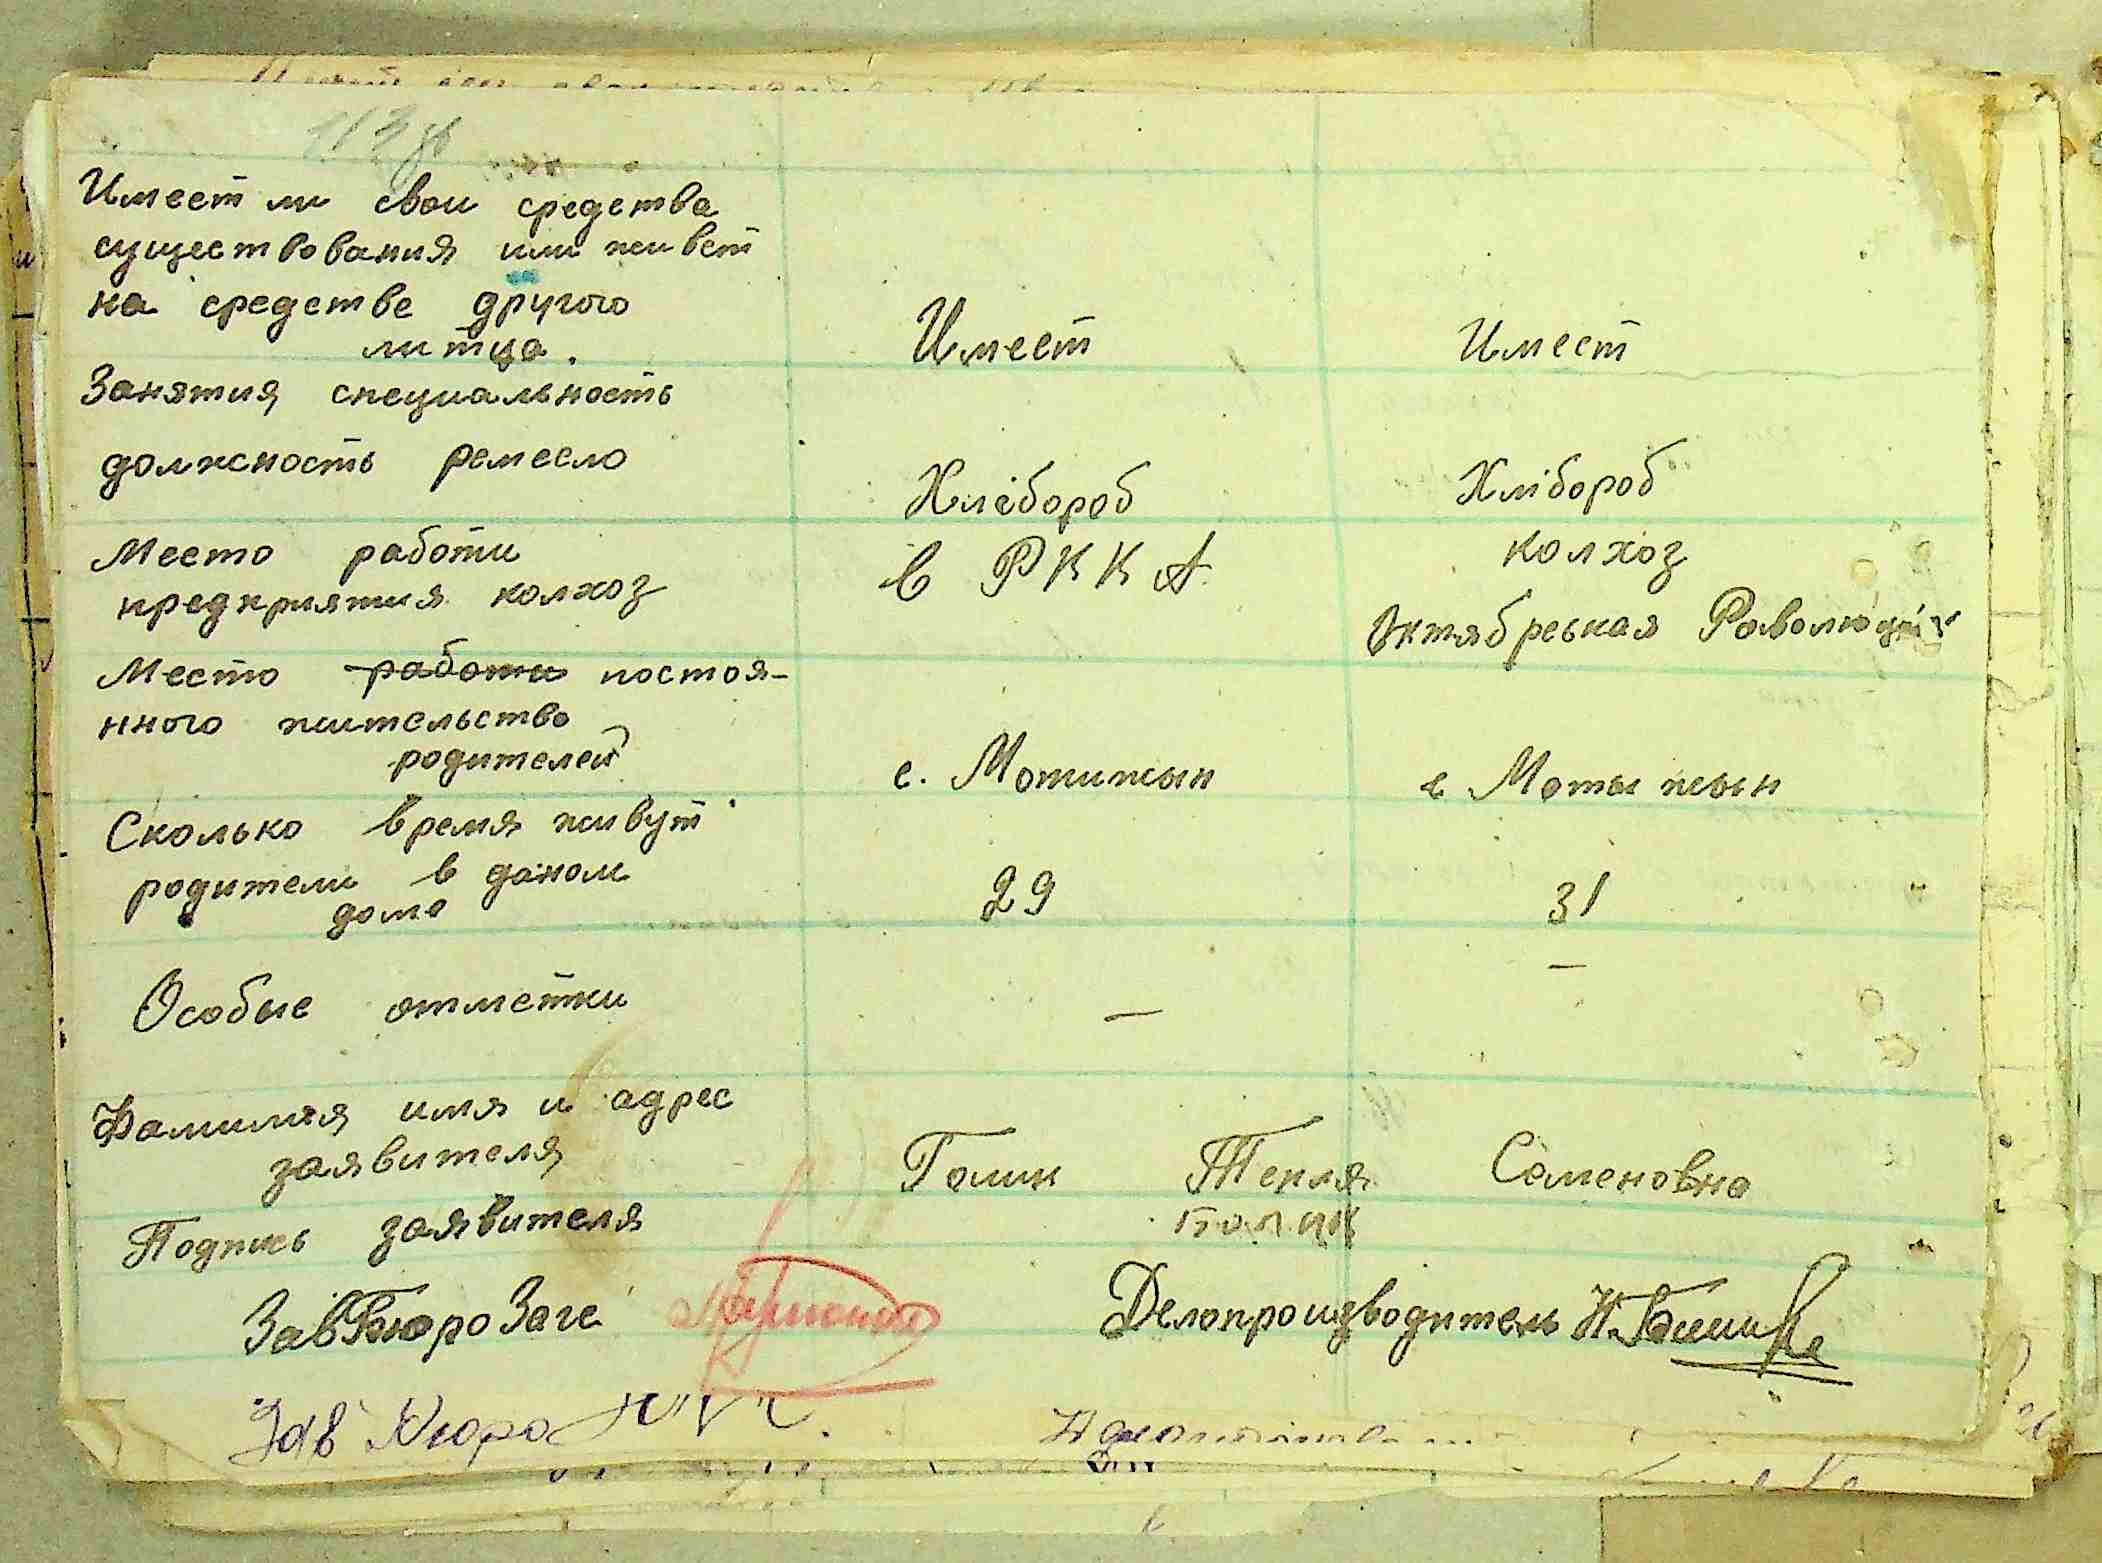 Имеет ли свои средства
существования или живет
на средстве другого
литца.
Имеет
Имеет
Занятия специальность
должность ремесло
Хлебороб
Хлібороб
Место работи
предприятия колхоз
в РККА
колхоз
Октябреькая
Место работи постоя-
нного жительства
родителей
с. Мотижын
с Мотыжын
Сколько время живут
родители в даном
доме
29
31
Особые отметки
—
—
Фамилия имя и адрес
заявителя
Голик Текля Семеновна
Подпись заявителя
Голик
ЗавБюро Загс
Делопроизводитель
Зав Бюро